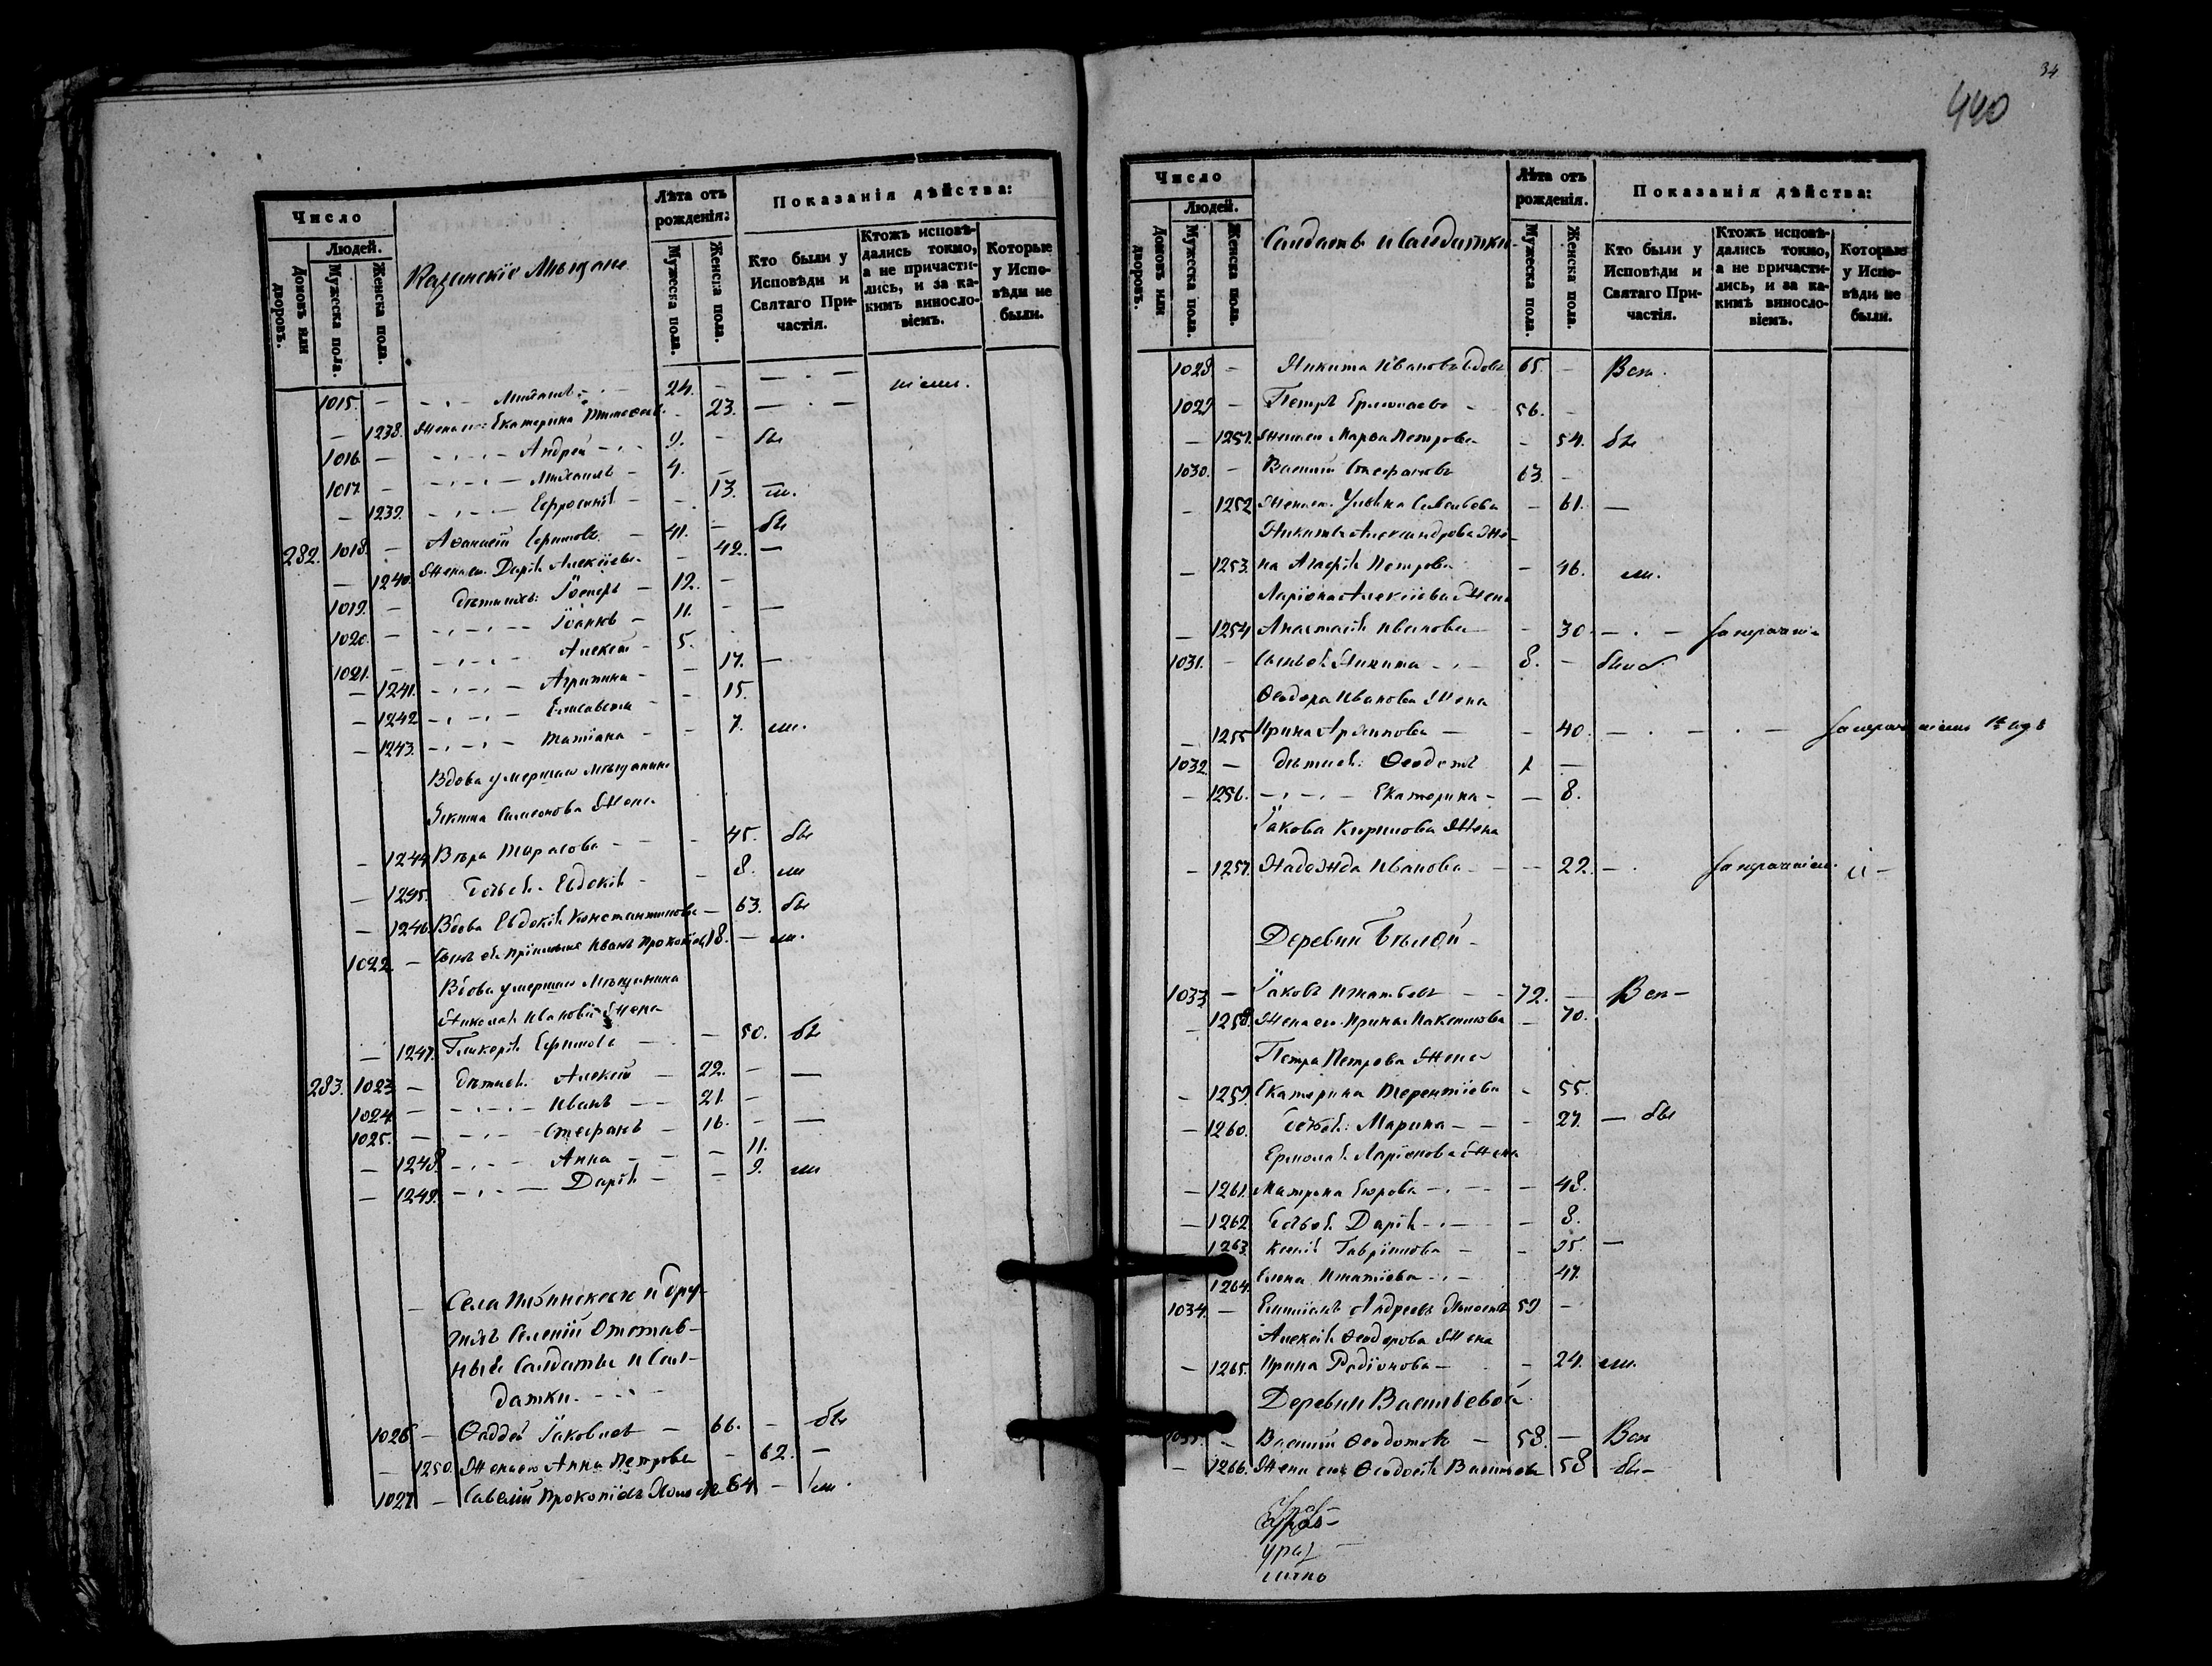 34
440
Число
Людей.
Домовъ или дворовъ.
Мужеска пола.
Женска пола.
Казинскіе Мѣщане
Лѣта отъ рожденія:
Мужеска пола.
Женска пола.
Показанія дѣйства:
Кто были у Исповѣди и Святаго Причастія.
Ктожъ исповѣдались токмо, а не причастились, и за какимъ винословіемъ.
Которые у Исповѣди не были.
1015. — Михаилъ — 24. —
— 1238. Жена его Екатерина — 23.
1016 — Андрей — 9. — бы
1017 — Михаилъ — 4. —
— 1239. Евфросинія — 13. ли.
282. 1018. — Аѳанасій Ефимовъ — 41. — бы
— 1240. Жена ег. Дарія Алексіева — 42. —
1019. — дѣти ихъ: Іосифъ — 12. —
1020. — Іоаннъ — 11. — —
1021. — Алексій — 5.
— 1241. Агрипина — 17. —
— 1242 Елисавета — 15.
— 1243. Татіана — 7. ли.
Вдова умершаго мѣщанина
Симеонова Жена
— 1244 Вѣра Тарасова — 45. бы
— 1245. Дочь ея Евдокія — 8. ли
— 1246. Вдова Евдокія Константинова — 63. бы
1022 — Сынъ ея Иванъ Прокопіев 18. — ли.
Вдова умершаго Мѣщанина
Николая Иванова Жена
— 1247. Гликерія Ефимова — 50. бы
283. 1023 — дѣти ея. Алексій — 22. — —
1024 — Иванъ — 21. —
1025. — Стефанъ — 16. — —
— 1248. Анна — 11.
— 1249. Дарія — 9. ли
— Села и дру-
гихъ Селеній Отстав-
ные Солдаты и Сол-
датки.
1026 — Ѳаддей Іаковлев — 66. — бы
— 1250. Жена его Анна Петрова — 62. —
1027 — Савелій Прокопіевъ 64 — ли.
Число
Людей.
Домовъ или дворовъ.
Мужеска пола.
Женска пола.
Солдаты и Солдатки
Лѣта отъ рожденія.
Мужеска пола.
Женска пола.
Показанія дѣйства:
Кто были у Исповѣди и Святаго Причастія.
Ктожъ исповѣдались токмо, а не причастились, и за какимъ винословіемъ.
Которые у Исповѣди не были.
1028 — Никита Ивановъ вдовъ 65. —
1029 — Петръ Ермолаевъ — 56. —
— 1251. Жена ег Марѳа Петрова — 54. бы
1030. — Василій Стефановъ 63. —
— 1252 Жена ег. Савельева — 61. —
Никиты Александрова Же-
— 1253. на Агафія Петрова — 46. ли.
Ларіона Алексіева Жена
— 1254 Анастасія Иванова — 30 —
1031. — Сынъ ея Никита — 8. —
Ѳеодора Иванова Жена
— 1255 Ирина — 40. —
1032 — дѣти ея: Ѳеодотъ 1 —
— 1256. Екатерина — 8.
Іакова Кирилова Жена
— 1257 Надежда Иванова — 22. —
Деревни Бѣлой
1033 — Іаковъ Игнатьевъ — 72. —
— 1258. Жена ег. Ирина Максимова — 70.
Петра Петрова Жена
— 1259. Екатерина Терентіева — 55.
— 1260. дочь ея: Марина — 27. — бы
Ермолая Ларіонова Жена
— 1261. Матрона Егорова — 48.
— 1262. дочь ея. Дарія — 8.
1263. Ксенія Гаврилова — 35. —
1264. Елена Игнатіева — 47.
1034. — Андреевъ 59 —
Алексія Ѳеодорова Жена
— 1265. Ирина Родіонова — 24. ли.
Деревни Васильевой
1035. — Василій Ѳеодотовъ — 58. —
— 1266. Жена его Ѳеодосія Васильева 58 бы